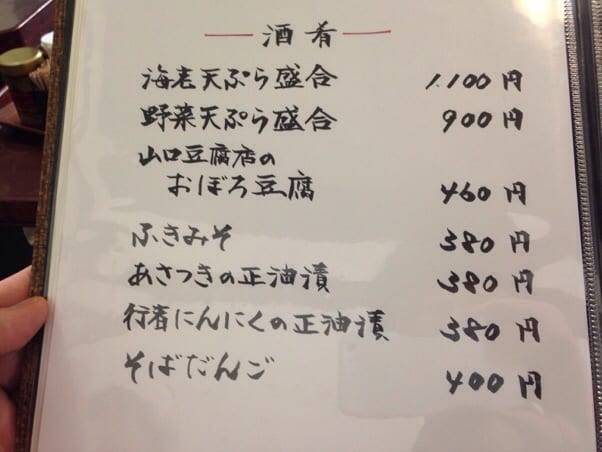 酒肴
海老天ぷら盛合 1.100円
野菜天ぷら盛合 900円
山口豆腐店の
おぼろ豆腐 460円
ふきみそ 380円
あさつきの正油漬 380円
行者にんにくの正油漬 380円
そばだんご 400円